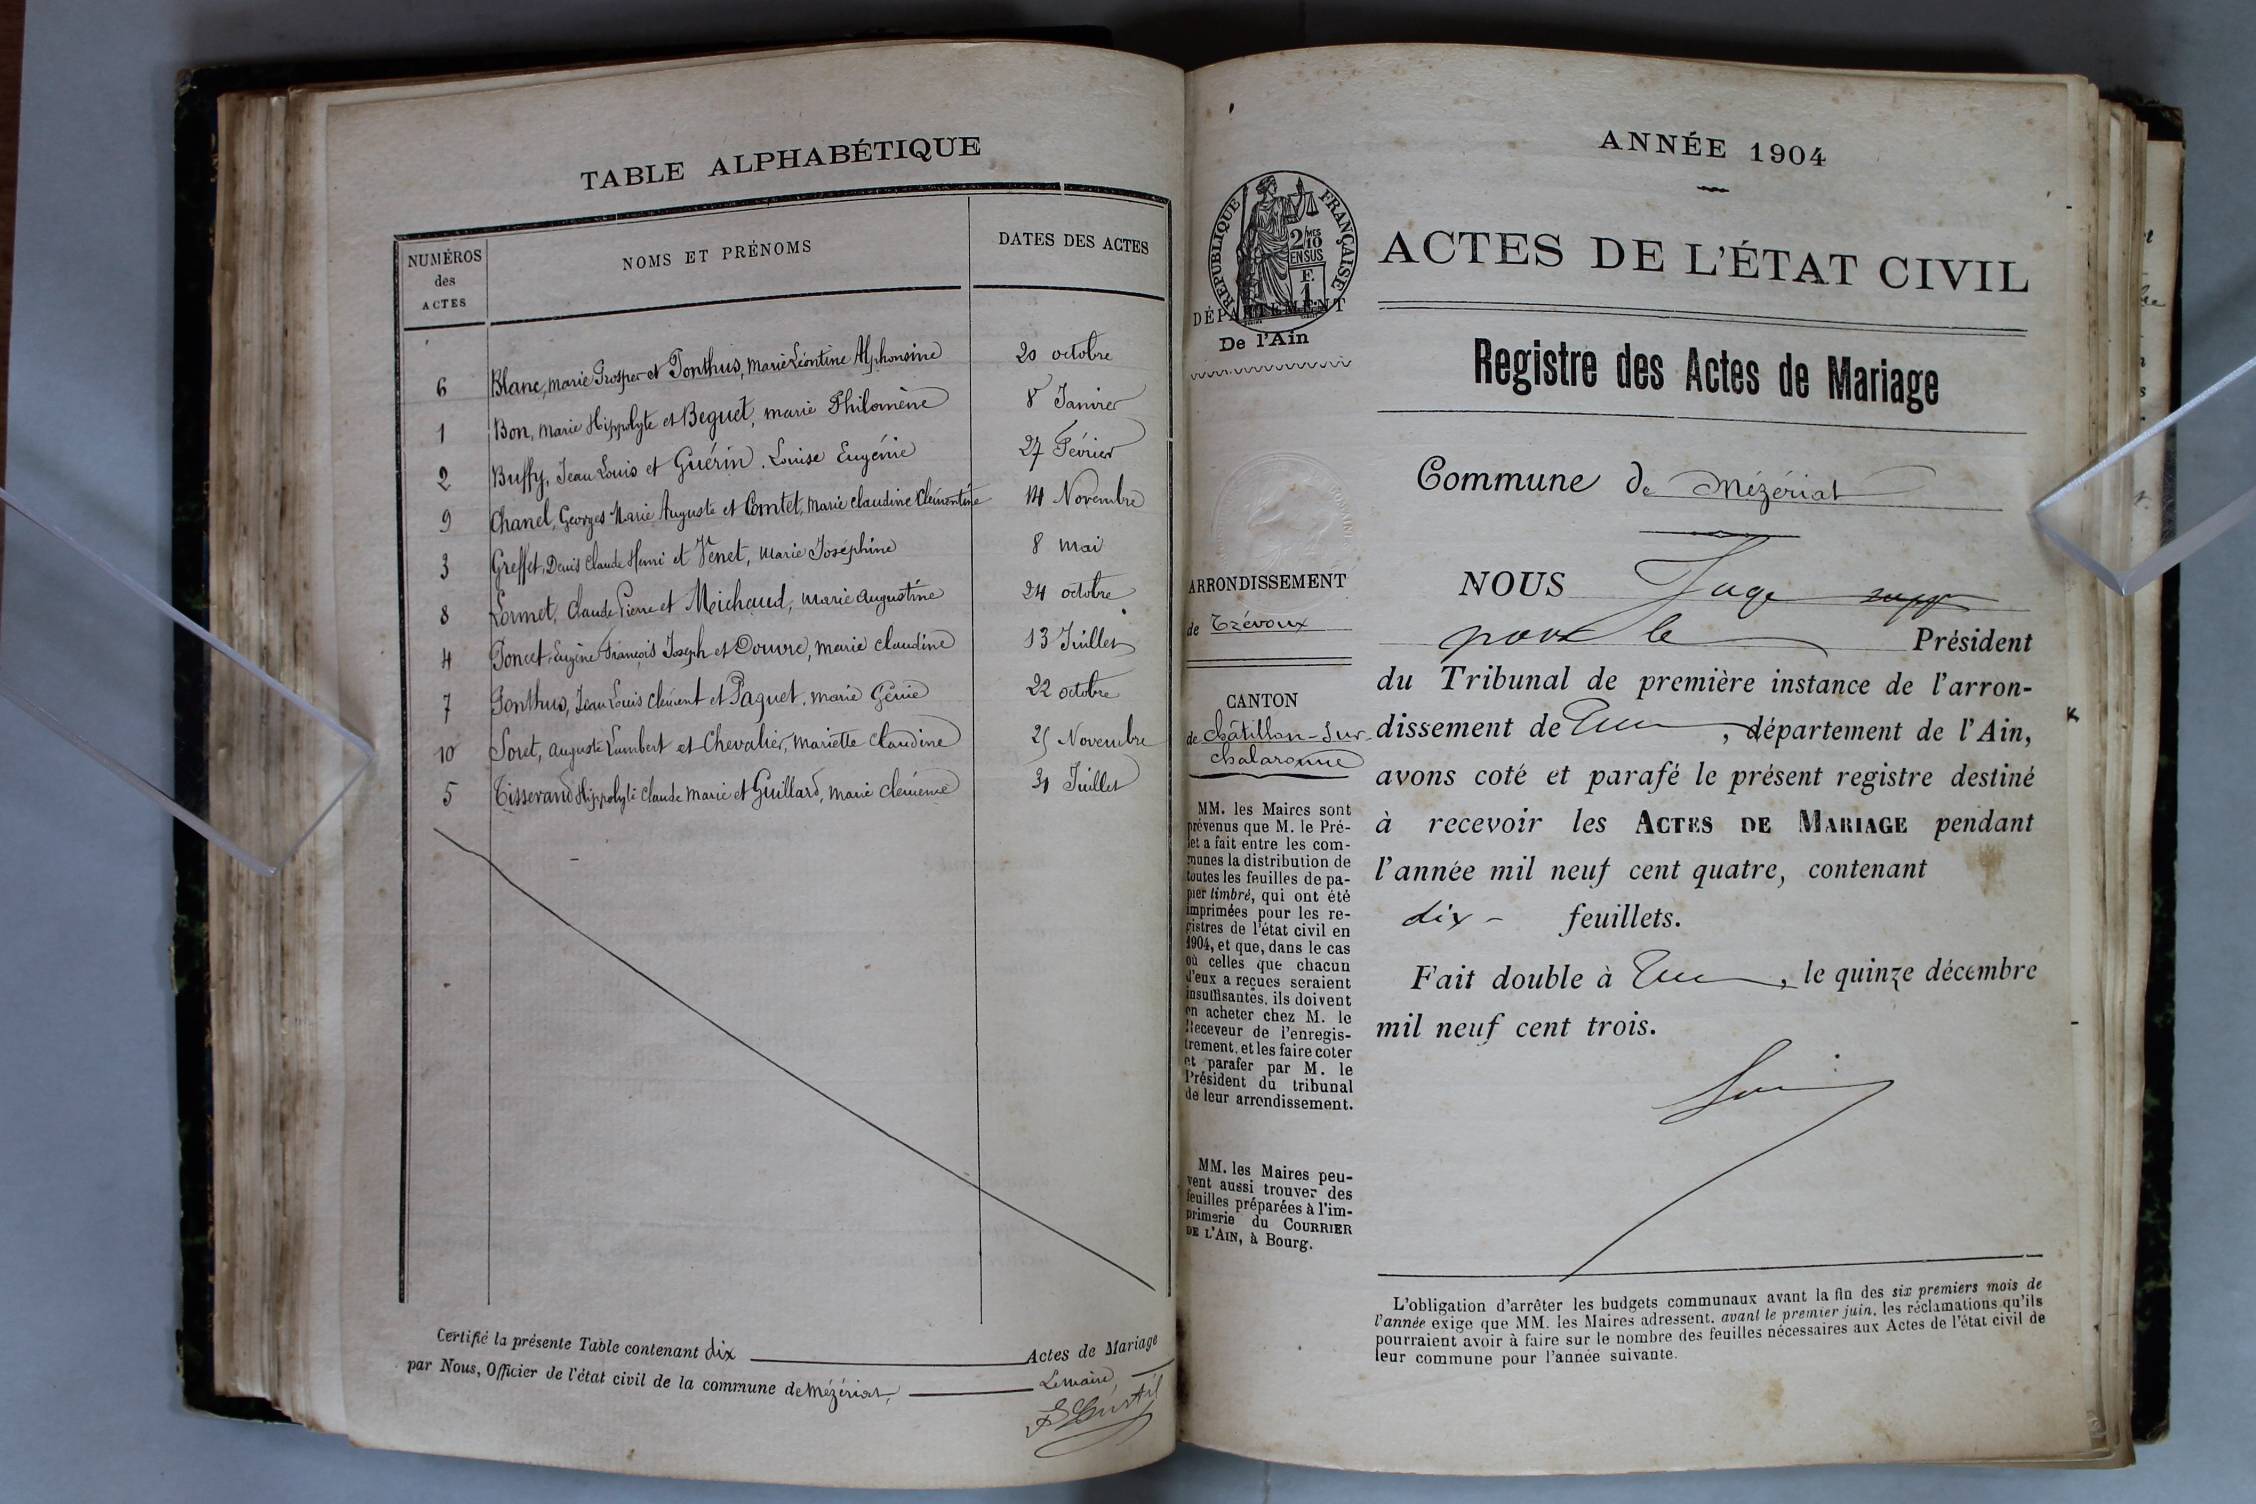 TABLE ALPHABÉTIQUE
NUMÉROS
des
ACTES
NOMS ET PRÉNOMS
DATES DES ACTES
6 Blanc, Marie Prosper et Ponthus, Marie Léontine Alphonsine 20 octobre
1 Bon, Marie Hippolyte et Beguet, Marie Philomène 8 Janvier
2 Buffy, Jean Louis et Guérin, Louise Eugénie 27 Février
9 Chanel, Georges Marie Auguste et Comtet, Marie Claudine Clémentine 14 Novembre
3 Greffet, Denis Claude Henri et Venet, Marie Joséphine 8 mai
8 Lormet, Claude Pierre et Michaud, Marie Augustine 24 octobre
4 Poncet, Eugène François Joseph et Douvre, Marie Claudine 13 Juillet
7 Ponthus, Jean Louis Clément et Paquet, Marie Génie 22 octobre
10 Soret, Auguste Lambert et Chevalier, Mariette Claudine 25 Novembre
5 Tisserand Hippolyte Claude Marie et Guillard, Marie Clémence Juillet
Certifié la présente Table contenant dix Actes de Mariage
par Nous, Officier de l'état civil de la commune de Mézériat,
Le maire,
ANNÉE 1904
RÉPUBLIQUE FRANÇAISE
2/10 MES
EN SUS
F
1
DÉPARTEMENT
De l'Ain
ACTES DE L'ÉTAT CIVIL
Registre des Actes de Mariage
Commune de Mézériat
ARRONDISSEMENT
de Trévoux
CANTON
de Châtillon-sur-
Chalaronne
MM. les Maires sont
prévenus que M. le Pré-
fet a fait entre les com-
munes la distribution de
toutes les feuilles de pa-
pier timbré, qui ont été
imprimées pour les re-
gistres de l'état civil en
1904, et que, dans le cas
où celles que chacun
d'eux a reçues seraient
insuffisantes, ils doivent
en acheter chez M. le
Receveur de l'enregis-
trement, et les faire coter
et parafer par M. le
Président du tribunal
de leur arrondissement.
MM. les Maires peu-
vent aussi trouver des
feuilles préparées à l'im-
primerie du COURRIER
DE L'AIN, à Bourg.
NOUS Juge supp
pour le Président
du Tribunal de première instance de l'arron-
dissement de , département de l'Ain,
avons coté et parafé le présent registre destiné
à recevoir les ACTES DE MARIAGE pendant
l'année mil neuf cent quatre, contenant
dix - feuillets.
Fait double à , le quinze décembre
mil neuf cent trois.
L'obligation d'arrêter les budgets communaux avant la fin des six premiers mois de
l'année exige que MM. les Maires adressent, avant le premier juin, les réclamations qu'ils
pourraient avoir à faire sur le nombre des feuilles nécessaires aux Actes de l'état civil de
leur commune pour l'année suivante.